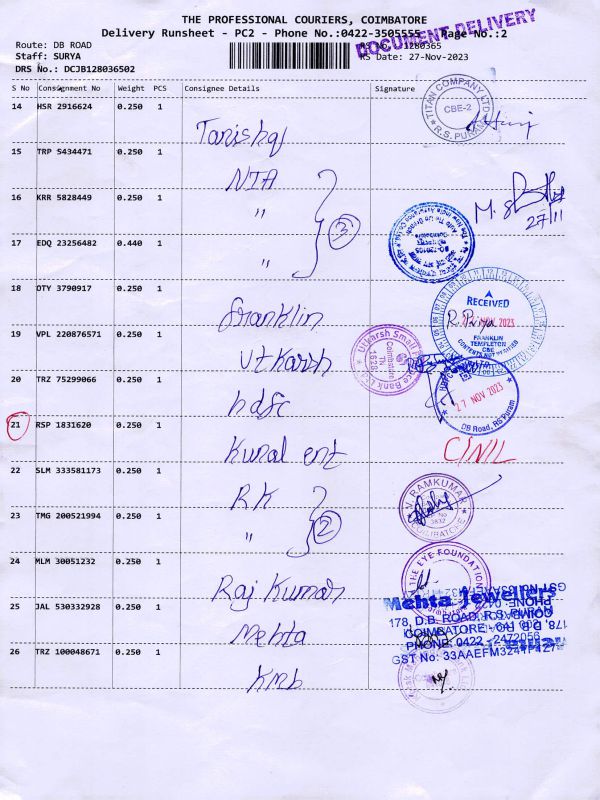 THE PROFESSIONAL COURIERS, COIMBATORE
Delivery Runsheet - PC2 - Phone No.:0422-3505555 Page No.:2
DOCUMENT DELIVERY
Route: DB ROAD
1280365
Staff: SURYA
RS Date: 27-Nov-2023
DRS No.: DCJB128036502
S No Consignment No Weight PCS Consignee Details Signature
14 HSR 2916624 0.250 1
Tanishq
TITAN COMPANY LTD
CBE-2
R.S. PURAM
15 TRP 5434471 0.250 1
NIA
16 KRR 5828449 0.250 1
"
3
27/11
17 EDQ 23256482 0.440 1
"
18 OTY 3790917 0.250 1
franklin
RECEIVED
R. Priya
NOV 2023
FRANKLIN
TEMPLETON
CBE
CONTENTS NOT VERIFIED
19 VPL 220876571 0.250 1
Utkarsh
Utkarsh Small Finance Bank Ltd.
Coimbatore
1628
20 TRZ 75299066 0.250 1
hdfc
27 NOV 2023
DB Road, RS Puram
21 RSP 1831620 0.250 1
Kunal ent
C/NIL
22 SLM 333581173 0.250 1
RK
V. RAMKUMAR
3832
COIMBATORE
23 TMG 200521994 0.250 1
"
2
24 MLM 30051232 0.250 1
Raj Kumar
THE EYE FOUNDATION
25 JAL 530332928 0.250 1
Mehta
Mehta Jewellers
178, D.B. ROAD, R.S. PURAM
COIMBATORE - 641 002
PHONE: 0422 - 2472056
GST No: 33AAEFM3241F427
26 TRZ 100048671 0.250 1
Kmb